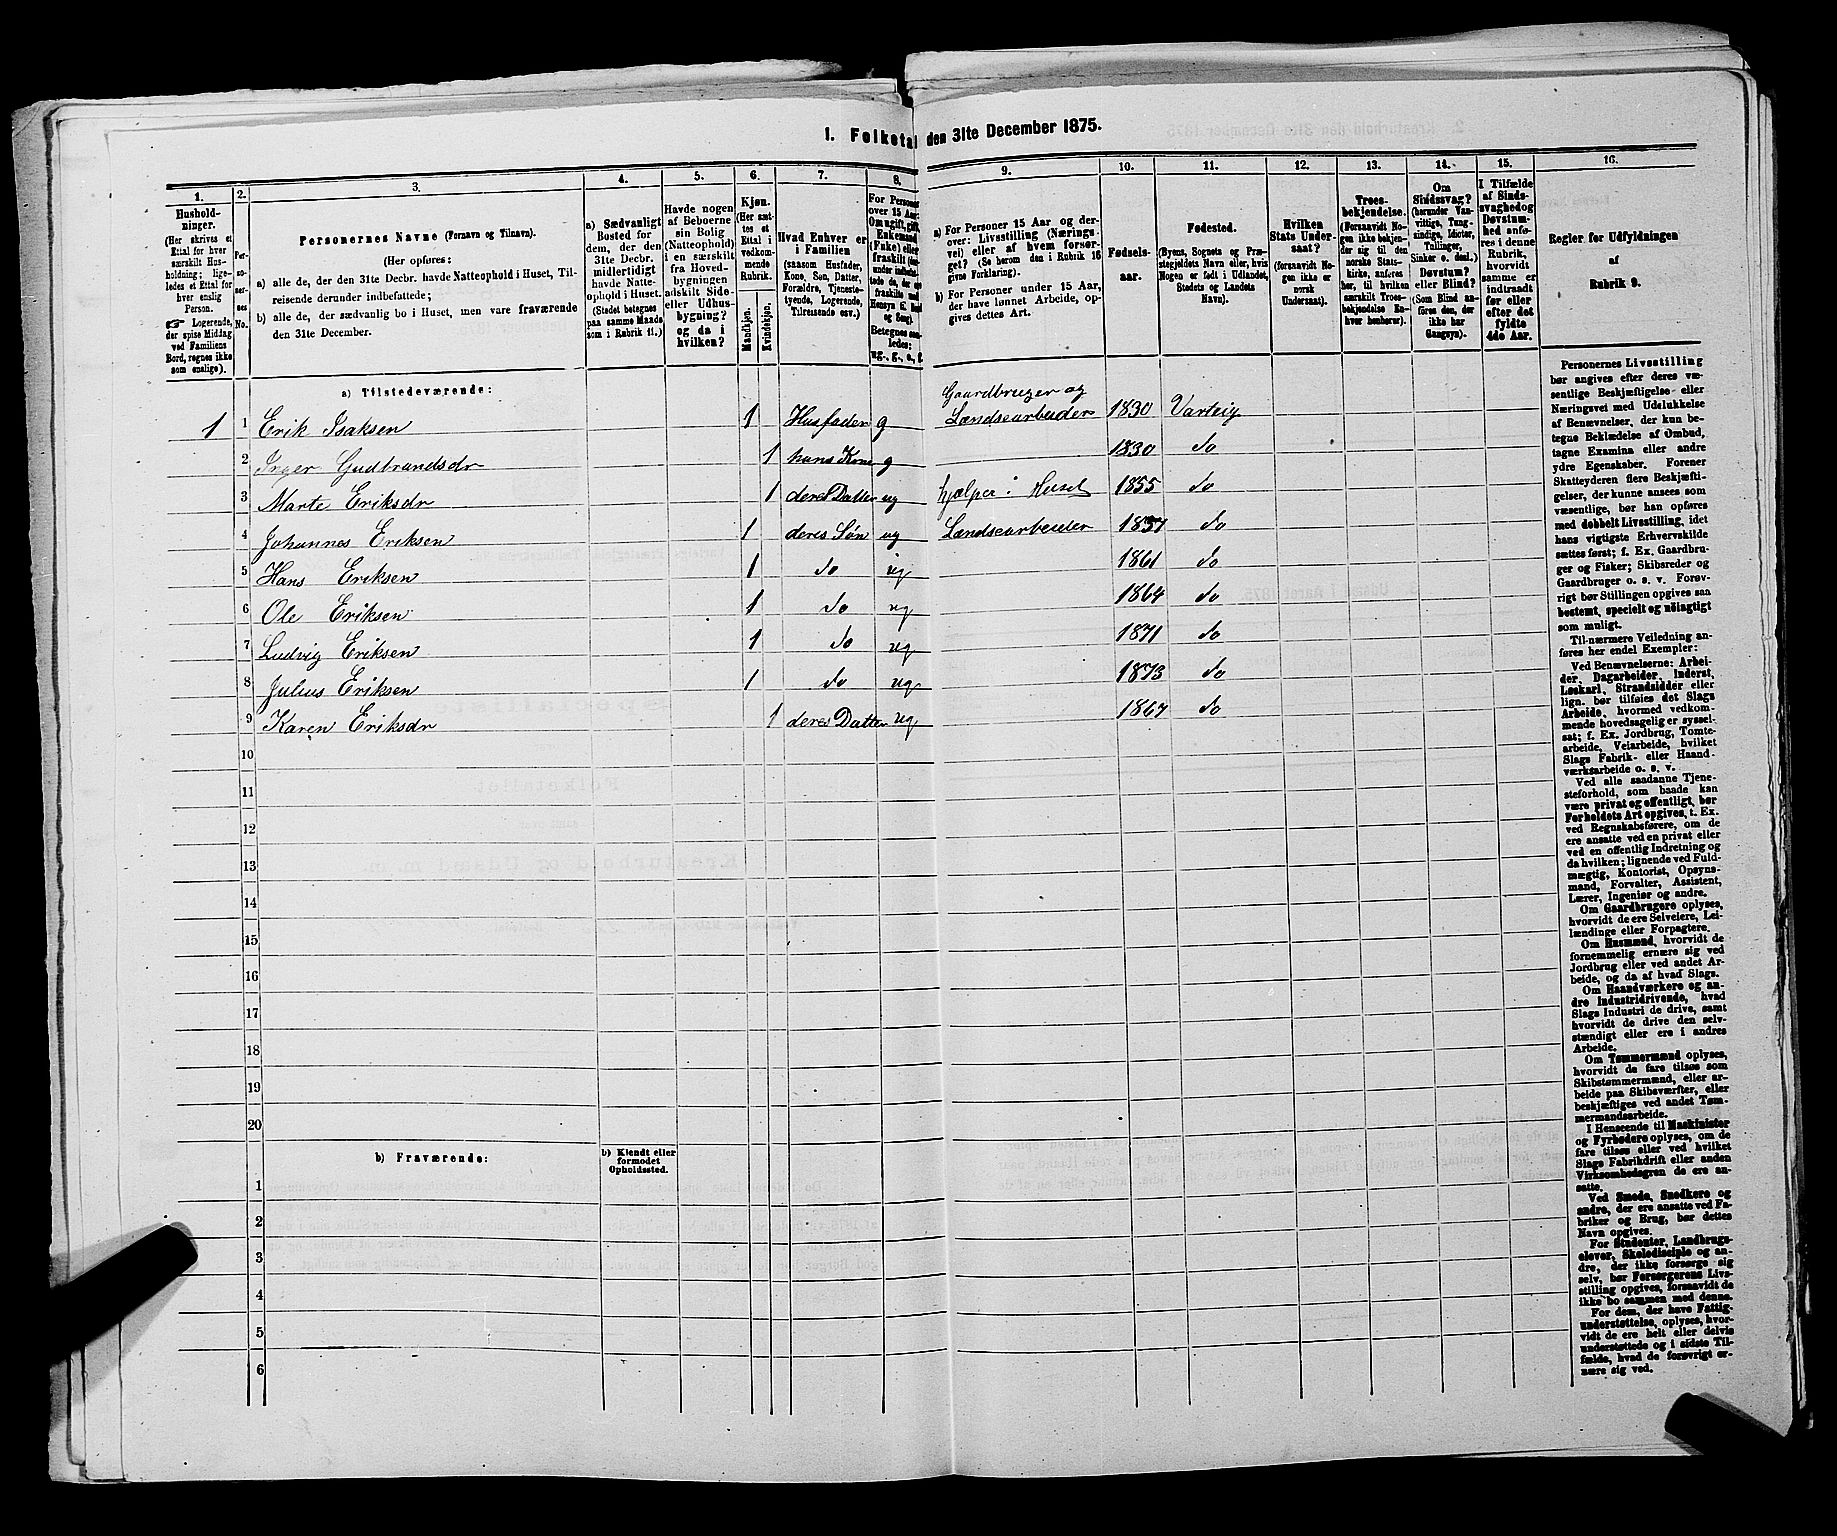 1. Folketal den 31te December 1875.
1.
2.
3.
4.
5.
6.
7.
8.
9.
10.
11.
12.
13.
14.
15.
16.
Hushold-
ninger.
(Her skrives et
Ettal for hver
særskilt Hus-
holdning; lige-
ledes et Ettal for
hver enslig
Person.
Logerende,
der spise Middag
ved Familiens
Bord, regnes ikke
som enslige).
Per-
so-
ner-
nes
No.
Personernes Navne (Fornavn og Tilnavn).
(Her opføres:
a) alle de, der den 31te Decbr. havde Natteophold i Huset, Til-
reisende derunder indbefattede;
b) alle de, der sædvanlig bo i Huset, men vare fraværende
den 31te December.
a) Sædvanligt
Bosted for
dem, der den
31te Decbr.
midlertidigt
havde Natte-
ophold i Huset.
(Stedet betegnes
paa samme Maade
som i Rubrik 11.)
Havde nogen
af Beboerne
sin Bolig
(Natteophold)
i en særskilt
fra Hoved-
bygningen
adskilt Side-
eller Udhus-
bygning?
og da i
hvilken?
Kjøn.
(Her sæt-
tes et
Ettal i
vedkom-
mende
Rubrik.
Mandkjøn.
Kvindekjøn.
Hvad Enhver er
i Familien
(saasom Husfader,
Kone, Søn, Datter,
Forældre, Tjeneste-
tyende, Logerende,
Tilreisende osv.)
For Personer
over 15 Aar:
Om ugift, gift,
Enkemand
(Enke) eller
fraskilt
Betegnes saa-
ledes:
ug., g., e., f.
a) For Personer 15 Aar og der-
over: Livsstilling (Nærings-
vei) eller af hvem forsør-
get? (Se herom den i Rubrik 16
givne Forklaring).
b) For Personer under 15 Aar,
der have lønnet Arbeide, op-
gives dettes Art.
Fødsels-
aar.
Fødested.
(Byens, Sognets og Præ-
stegjeldets Navn eller, hvis
Nogen er født i Udlandet,
Stedets og Landets
Navn).
Hvilken
Stats Under-
saat?
(forsaavidt No-
gen ikke er
norsk
Undersaat).
Troes-
bekjendelse.
(Forsaavidt No-
gen ikke bekjen-
der sig til den
norske Stats-
kirke, anføres
her, til hvilken
særskilt Troes-
bekjendelse En-
hver henhører).
Om
Sindssvag?
(herunder Van-
vittige, Tung-
sindige, Idioter,
Tullinger,
Sinker o. desl.)
Døvstum?
eller Blind?
(Som Blind an-
føres den, der
ikke har
Gangsyn).
I Tilfælde
af Sinds-
svaghed og
Døvstum-
hed anfø-
res i denne
Rubrik,
hvorvidt
samme er
indtraadt
før eller
efter det
fyldte
4de Aar.
Regler for Udfyldningen
af
Rubrik 9.
a) Tilstedeværende:
Gaardbruger og
1 1 Erik Isaksen 1 Husfader g Landsearbeider 1830 Varteig
2 Inger Gudbrandsdr 1 hans Kone g 1830 do
3 Marte Eriksdr 1 deres Datter ug hjælper i Huset 1855 do
4 Johannes Eriksen 1 deres Søn ug Landsearbeider 1857 do
5 Hans Eriksen 1 do ug 1861 do
6 Ole Eriksen 1 do ug 1864 do
7 Ludvig Eriksen 1 do ug 1871 do
8 Julius Eriksen 1 do ug 1873 do
9 Karen Eriksdr 1 deres Datter ug 1867 do
10
11
12
13
14
15
16
17
18
19
20
b) Fraværende:
b) Kjendt eller
formodet
Opholdssted.
1
2
3
4
5
6
Personernes Livsstilling
bør angives efter deres væ-
sentlige Beskjæftigelse eller
Næringsvei med Udelukkelse
af Benævnelser, der kun be-
tegne Beklædelse af Ombud,
tagne Examina eller andre
ydre Egenskaber. Forener
Skatteyderen flere Beskjæfti-
gelser, der kunne ansees som
væsentlige, bør han opføres
med dobbelt Livsstilling, idet
hans vigtigste Erhvervskilde
sættes først; f. Ex. Gaardbru-
ger og Fisker; Skibsreder og
Gaardbruger o. s. v. Forøv-
rigt bør Stillingen opgives saa
bestemt, specielt og nöiagtigt
som muligt.
Til nærmere Veiledning an-
føres her endel Exempler:
Ved Benævnelserne: Arbei-
der, Dagarbeider, Inderst,
Løskarl, Strandsidder eller
lign. bør tilføies det Slags
Arbeide, hvormed vedkom-
mende hovedsagelig er syssel-
sat; f. Ex. Jordbrug, Tomte-
arbeide, Veiarbeide, hvilket
Slags Fabrik- eller Haand-
værksarbeide o. s. v.
Ved alle saadanne Tjene-
steforhold, som baade kan
være privat og offentligt, bør
Forholdets Art opgives, t. Ex.
ved Regnskabsførere, om de
ere ansatte ved en privat eller
ved en offentlig Indretning og
da hvilken; lignende ved Fuld-
mægtig, Kontorist, Opsyns-
mand, Forvalter, Assistent,
Lærer, Ingeniør og andre.
Om Gaardbrugere oplyses,
hvorvidt de ere Selveiere, Lei-
lændinge eller Forpagtere.
Om Husmænd, hvorvidt de
fornemmelig ernære sig ved
Jordbrug eller ved andet Ar-
beide, og da af hvad Slags.
Om Haandværkere og an-
dre Industridrivende, hvad
Slags Industri de drive, samt
hvorvidt de drive den selv-
stændigt eller ere i andres
Arbeide.
Om Tømmermænd oplyses,
hvorvidt de fare tilsøs som
Skibstømmermænd, eller ar-
beide paa Skibsværfter, eller
beskjæftiges ved andet Tøm-
mermandsarbeide.
I Henseende til Maskinister
og Fyrbødere oplyses, om de
fare tilsøs eller ved hvilket
Slags Fabrikdrift eller anden
Virksomhedsgren de ere an-
satte.
Ved Smede, Snedkere og
andre, der ere ansatte ved Fa-
briker og Brug, bør dettes
Navn opgives.
For Studenter, Landbrugs-
elever, Skoledisciple og an-
dre, der ikke forsørge sig
selv, bør Forsørgerens Livs-
stilling opgives, forsaavidt de
ikke bo sammen med denne.
For dem, der have Fattig-
understøttelse, oplyses, hvor-
vidt de ere helt eller delvis
understøttede og i sidste Til-
fælde, hvad de forøvrigt er-
nære sig ved.